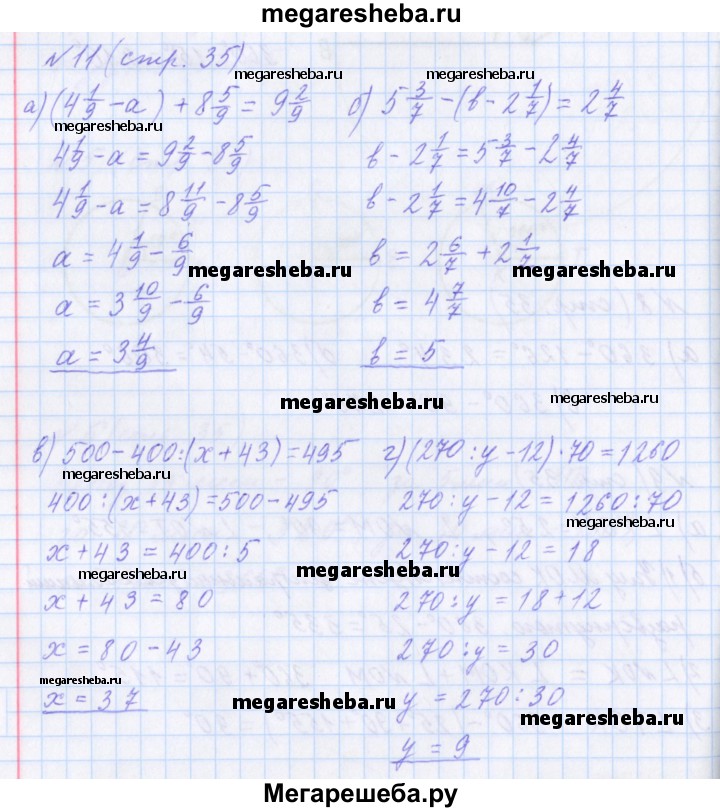 megaresheba.ru
№11 (стр. 35)
megaresheba.ru
а) (4 1/9 - а) + 8 5/9 = 9 2/9
megaresheba.ru
4 1/9 - а = 9 2/9 - 8 5/9
4 1/9 - а = 8 11/9 - 8 5/9
а = 4 1/9 - 6/9
megaresheba.ru
а = 3 10/9 - 6/9
а = 3 4/9
б) 5 3/7 - (в - 2 1/7) = 2 4/7
megaresheba.ru
в - 2 1/7 = 5 3/7 - 2 4/7
в - 2 1/7 = 4 10/7 - 2 4/7
в = 2 6/7 + 2 1/7
megaresheba.ru
в = 4 7/7
в = 5
megaresheba.ru
в) 500 - 400 : (х + 43) = 495
megaresheba.ru
400 : (х + 43) = 500 - 495
х + 43 = 400 : 5
megaresheba.ru
х + 43 = 80
х = 80 - 43
megaresheba.ru
х = 37
г) (270 : у - 12) · 70 = 1260
270 : у - 12 = 1260 : 70
megaresheba.ru
270 : у - 12 = 18
megaresheba.ru
270 : у = 18 + 12
270 : у = 30
у = 270 : 30
megaresheba.ru
megaresheba.ru
у = 9
Мегарешеба.ру